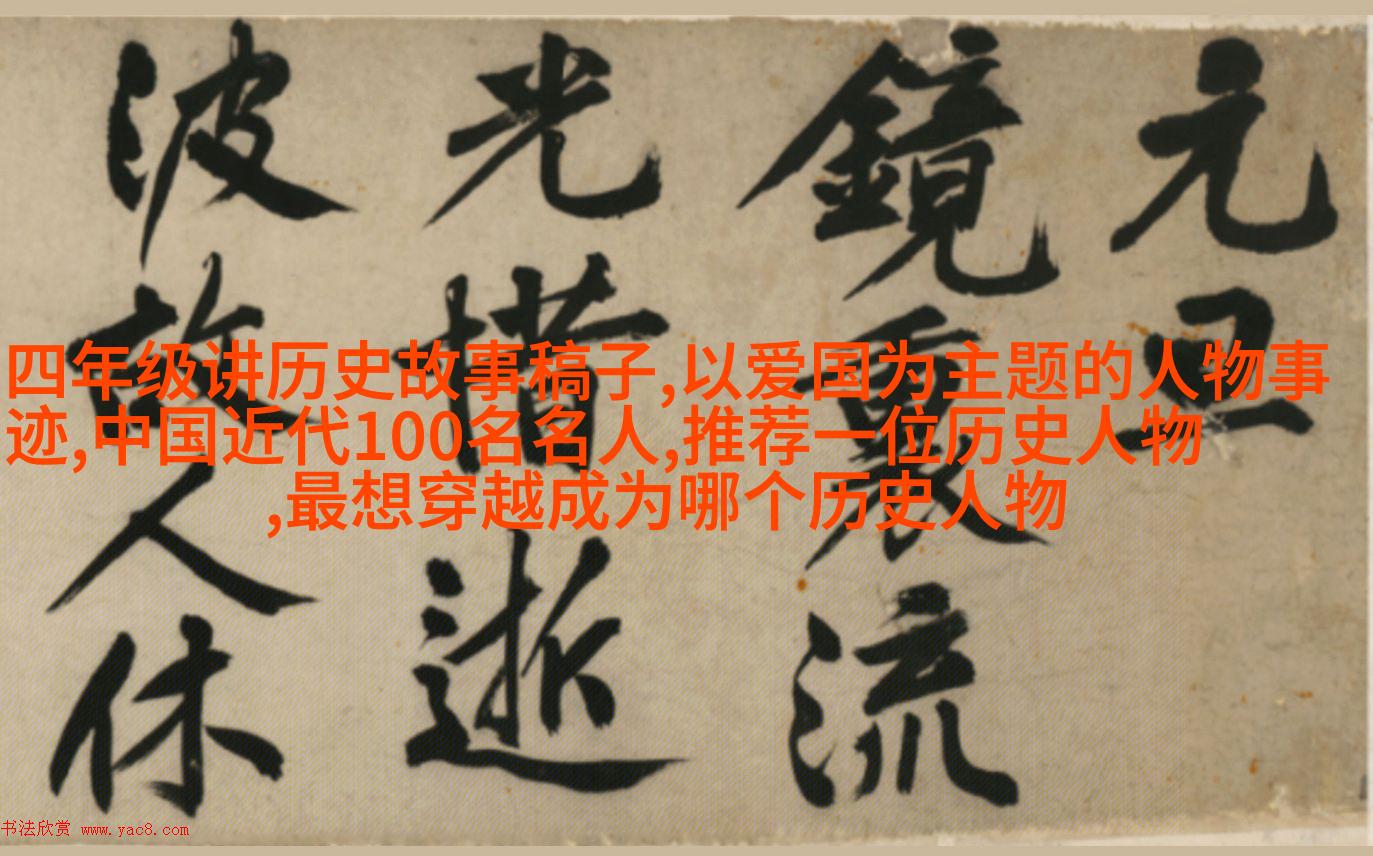 四年级讲历史故事稿子,以爱国为主题的人物事
迹,中国近代100名名人,推荐一位历史人物
,最想穿越成为哪个历史人物
元
鏡裏流
光惜逝
波故人休
书法欣赏 www.yac8.com